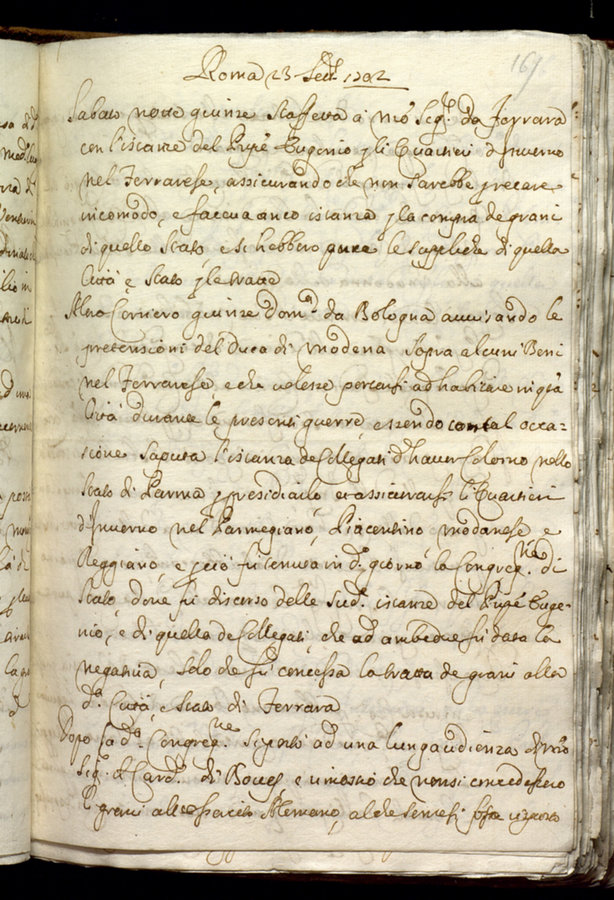 169
Roma 23 Sett.e 1702
Sabato notte giunse staffetta à n̄ro Sig.r da Ferrara
con l'istanze del Prn̄pe Eugenio p li Quartieri d'Inverno
nel Ferrarese, assicurando che non sarebbe p recare
incomodo, e faceva anco istanza p la compra de grani
di quello Stato e si hebbero pure le suppliche di quella
Città e Stato p le tratte
Altro Corriero giunse Dom.ca da Bologna avvisando le
pretensioni del Duca di Modena sopra alcuni Beni
nel Ferrarese, e che volesse portarsi ad habitare in q̄ta
Città durante le presenti guerre, essendo con tal occa-
sione saputa l'istanza de Collegati d'haver Colorno nello
Stato di Parma p presidiarlo et assicurarsi li Quartieri
d'Inverno nel Parmegiano, Piacentino Modanese e
Reggiano, e p ciò fu tenuta in d.o giorno la Congreg.ne di
Stato, dove fu discorso delle sud.e istanze del Prn̄pe Euge-
nio, e di quella de Collegati, che ad ambedue fu data la
negativa, solo che fu concessa la tratta de grani alla
d.a Città, e Stato di Ferrara
Dopo la d.a Congreg.ne si portò ad una lunga udienza di n̄ro
Sig.r il Card.l di e rimostrò che non si concedessero
grani all'essercito Alemano, al che sentesi fosse risposto